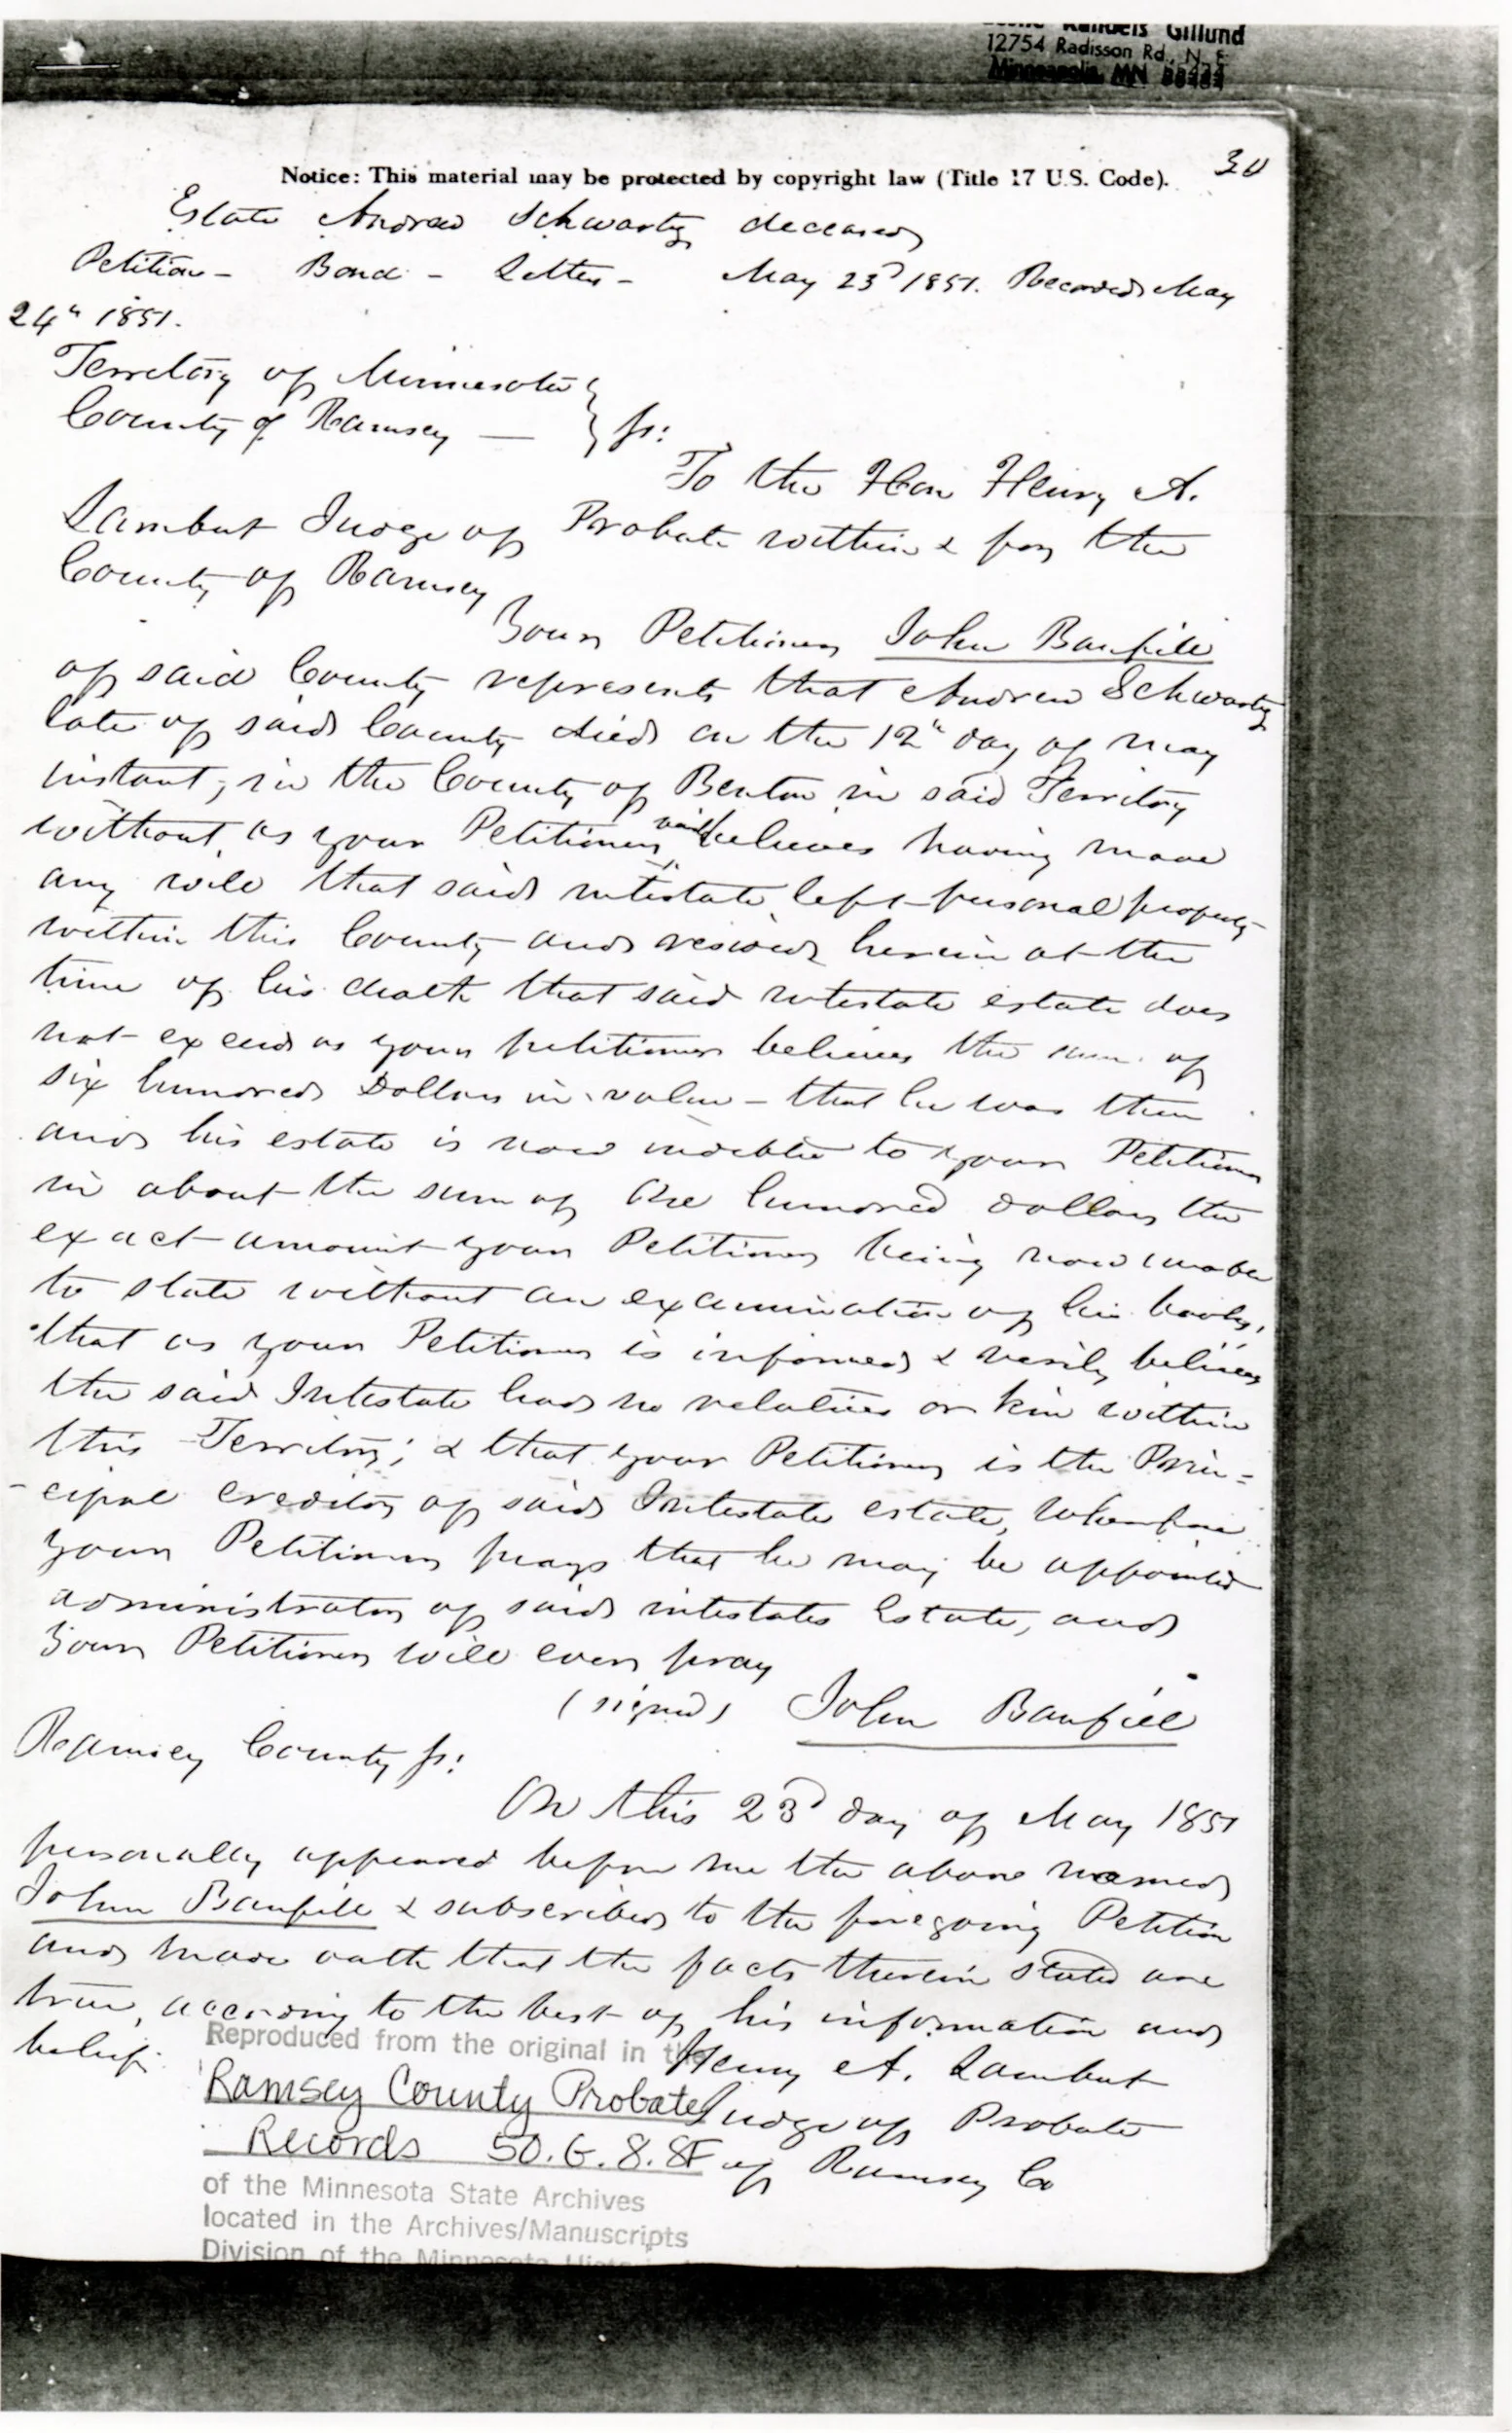 Randels Gillund
12754 Radisson Rd., N. E
Minneapolis, MN
30
Notice: This material may be protected by copyright law (Title 17 U.S. Code).
Estate Andrew Schwartz deceased
Petition - Bond - Letters - May 23d 1851. Recorded May
24th 1851.
Territory of Minnesota }
County of Ramsey — } ss:
To the Hon Henry A.
Lambert Judge of Probate within & for the
County of Ramsey
Your Petitioner John Banfill
of said County represents that Andrew Schwartz
late of said County died on the 12th day of may
instant, in the County of Benton in said Territory
without, as your Petitioner believes having made
any will that said intestate left personal property
within this County and resided herein at the
time of his death that said intestate estate does
not exceed as your petitioner believes the sum of
six hundred Dollars in value - that he was then
and his estate is now indebted to your Petitioner
in about the sum of One hundred dollars the
exact amount your Petitioner being now unable
to state without an examination of his books,
that as your Petitioner is informed & verily believes
the said Intestate had no relatives or kin within
this Territory; & that your Petitioner is the Prin=
-cipal creditor of said Intestate estate, Wherefore
your Petitioner prays that he may be appointed
administrator of said intestates Estate, and
your Petitioner will ever pray
(signed) John Banfill
Ramsey County ss:
On this 23d day of May 1851
personally appeared before me the above named
John Banfill & subscribed to the foregoing Petition
and made oath that the facts therein stated are
true, according to the best of his information and
belief.
Henry A. Lambert
Judge of Probate
of Ramsey Co
Reproduced from the original in the
Ramsey County Probate
Records 50.G.8.8F
of the Minnesota State Archives
located in the Archives/Manuscripts
Division of the Minnesota